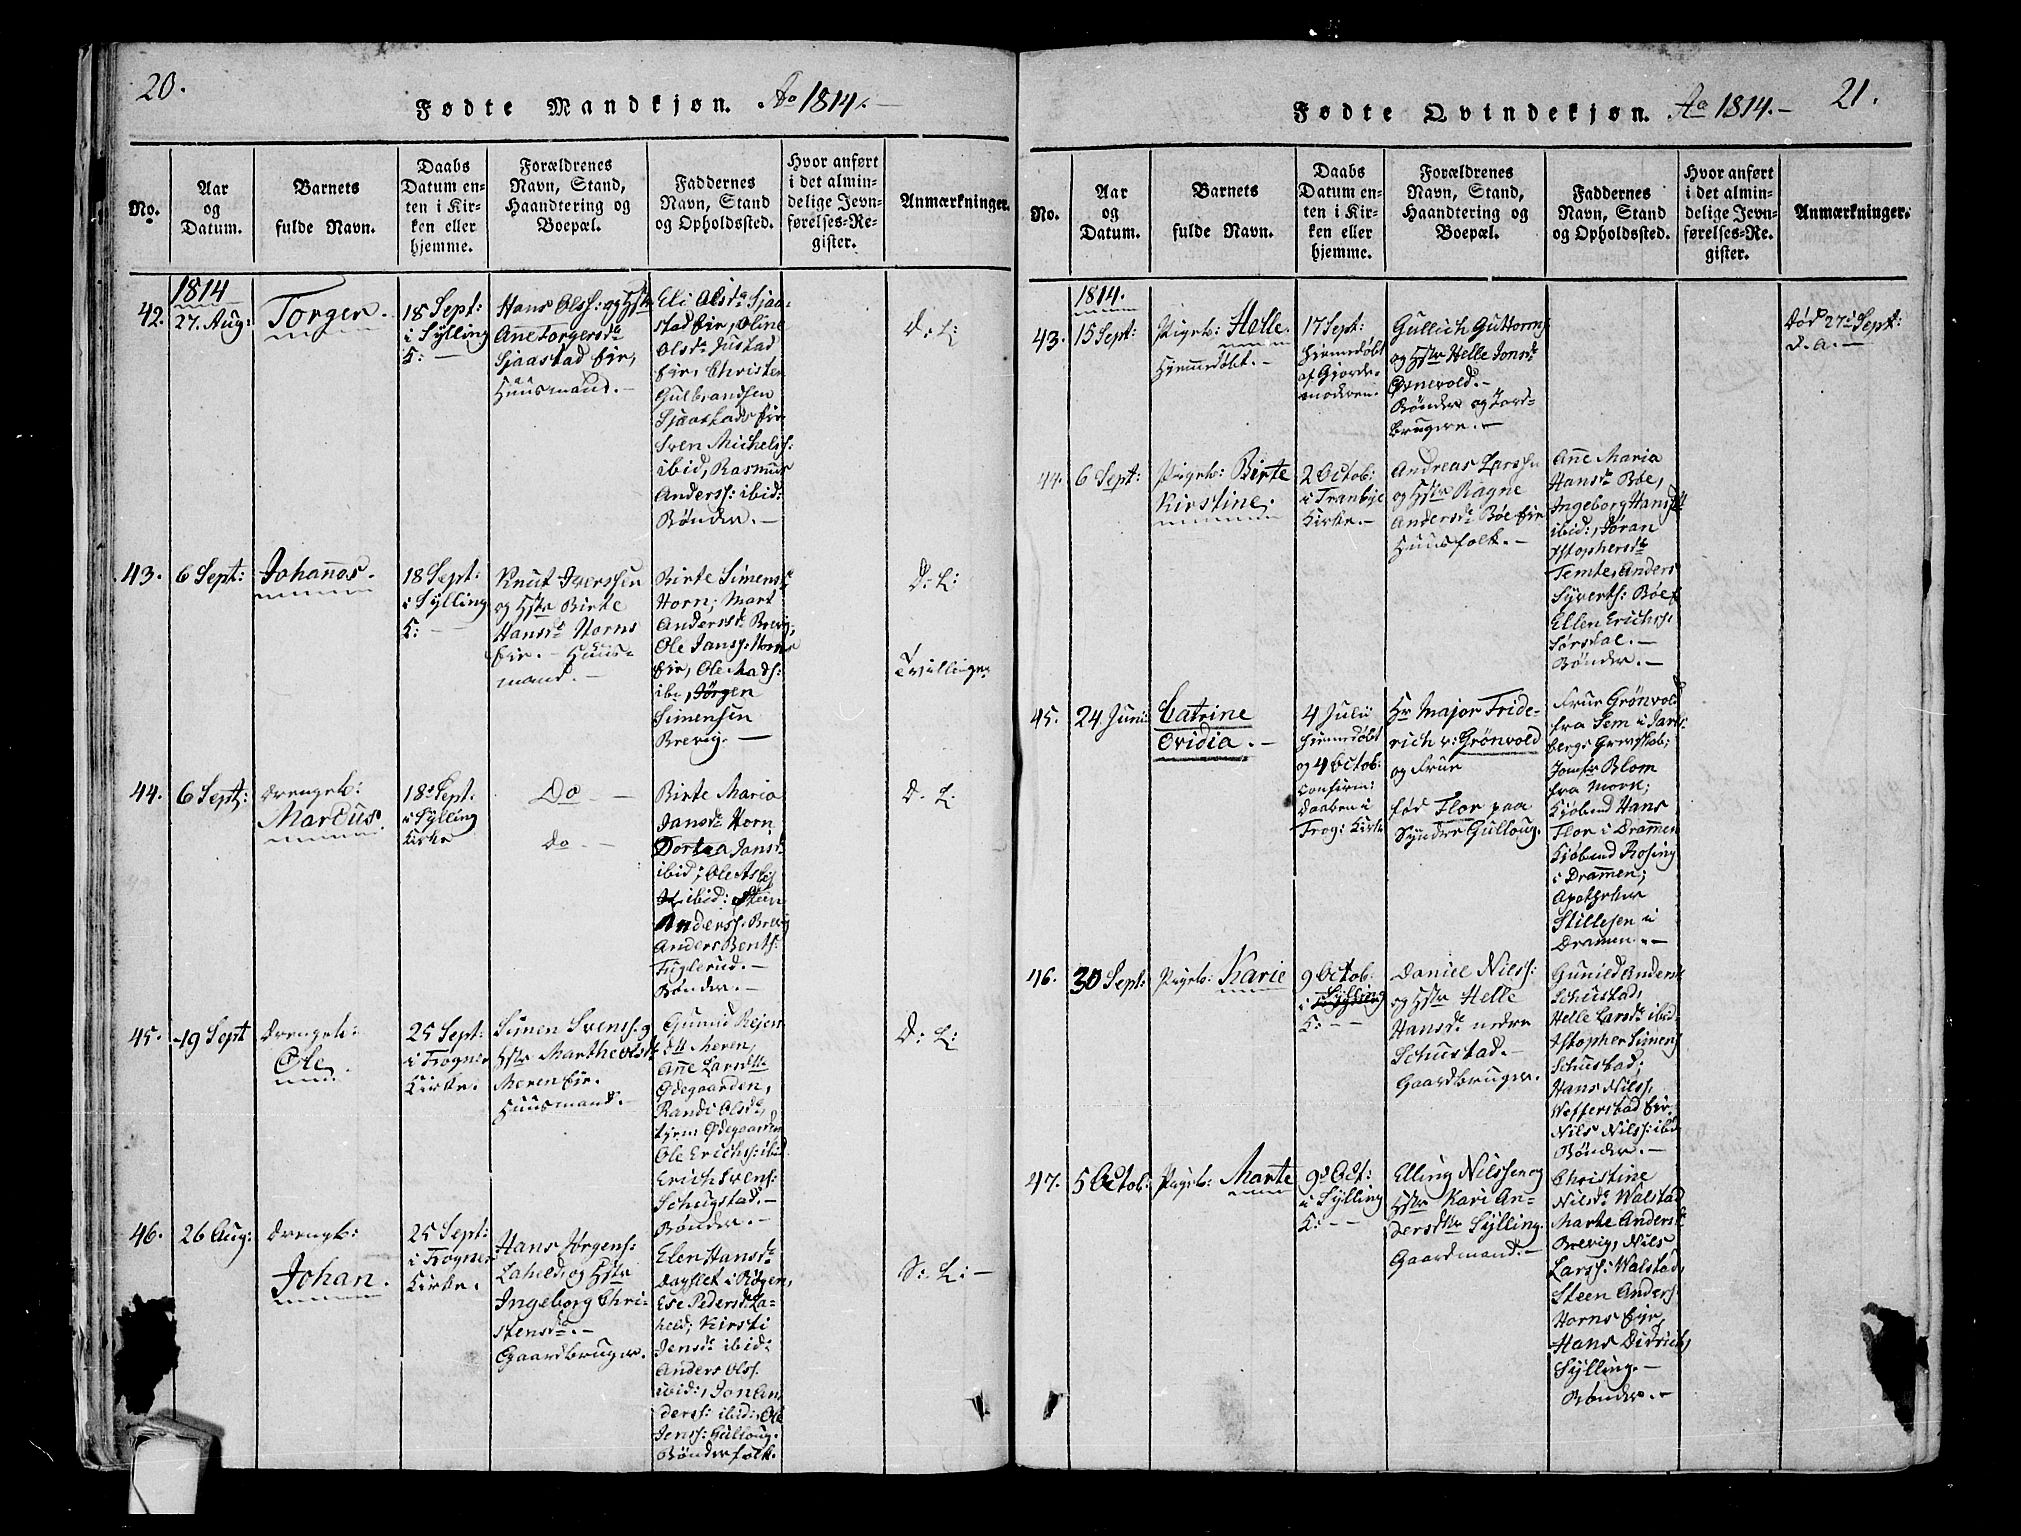 20.
Fødte Mandkjøn. Ao 1814.—
No.
Aar
og
Datum.
Barnets
fulde Navn.
Daabs
Datum en-
ten i Kir-
ken eller
hjemme.
Forældrenes
Navn, Stand,
Haandtering og
Boepæl.
Faddernes
Navn, Stand
og Opholdssted.
Hvor anført
i det almin-
delige Jevn-
førelses-Re-
gister.
Anmærkninger.
42.
1814
27. Aug:
Torger.
18 Sept:
i Sylling
K: —
Hans Olss: og Hstr
Anne Torgersdr
Sjaastad Eir,
Huusmand. —
Eli Olsdr Sjaa-
stad Eir, Oline
Olsdr Justad
Eir, Christen
Gulbrandsen
Sjaastads Eir
Sven Michelss:
ibid, Rasmus
Anderss: ibid:
Bønder. —
D: L:
43.
6 Sept:
Johannes.
18 Sept:
i Sylling
K: —
Knut Iverssen
og Hstr Birte
Hansdr Horns
Eir. — Huus-
mand. —
Birte Simensdr
Horn; Mart
Andersdr Brevig,
Ole Janss: Horns
Eir, Ole Mads:
ib:, Jørgen
Simensen
Brevig. —
D: L:
Tvillinger
44.
6 Sept:
Drengeb:
Marcus.
18d Sept.
i Sylling
Kirke
Do —
Do. —
Birte Maria
Jansdr Horn,
Dortea Jansdr
ibid; Ole Asl
ibid: Steen
Anderss: Brevig
Anders Bents:
Fuglerud. —
Bønder. —
D. L:
45.
19 Sept
Drengeb:
Ole
25 Sept:
i Frogner
Kirke.
Simen Svenss: og
Hstr Marthe Olsdr
Meren Eir.
Huusmand. —
Gunild
Meren,
Anne Larsdtr
Ødegaarden,
Randi Olsdr,
Ødegaarden
Ole Erichss: ibid.
Erich Svens:
Schugstad. —
Bønder. —
D: L:
46.
26 Aug:
Drengb:
Johan.
25 Sept:
i Frogner
Kirke.
Hans Jørgens:
Laheld, og Hstr
Ingeborg Chri-
stensdr. —
Gaardbruger.
Elen Hansdr
Dayslet i Røgen,
Ese Pedersdr La-
held; Kirsti
Jensdr ibid:
Anders Olss.
ibid:, Jon An-
derss: ibid:, Ole
Jenss: Gulloug.
Bønderfolk.
S: L: —
21.
Fødte Qvindekjøn. Ao 1814. —
No.
Aar
og
Datum.
Barnets
fulde Navn.
Daabs
Datum en-
ten i Kir-
ken eller
hjemme.
Forældrenes
Navn, Stand,
Haandtering og
Boepæl.
Faddernes
Navn, Stand
og Opholdssted.
Hvor anført
i det almin-
delige Jevn-
førelses-Re-
gister.
Anmærkninger.
43.
1814.
15 Sept:
Pigeb: Helle.
Hiemedøbt. —
17 Sept:
Hiemedøbt
af Gjorde-
moderen.
Gullich Guttorms
og Hstr Helle Jonsdr
Ornevold. —
Bønder og Jord-
bruger. —
Død 27d Sept:
D. a. —
44.
6 Sept:
Pigeb: Birte
Kirstine;
2 Octob:
i Tranbye
Kirke. —
Andreas Larssen
og Hstr Ragne
Andersdr Bøe Eir
Huusfolk. —
Anne Maria
Hansdr Bøe,
Ingeborg Hansdtr
ibid:, Joran
Xstophersdr
Temte, Anders
Syverts: Bøe,
Ellen Erichss:
Sørsdal. —
Bønder. —
45.
24 Juni:
Catrine
Ovidia. —
4 Julii
Hiemedøbt
og 4 Octob:
confirm:
Daaben i
Frog: Kirke
Hr Major Fride-
rich v: Grönvold
og Frue
fød Flor paa
Syndre Gulloug.
Frue Grönvold
fra Sem i Jarls-
bergs Grevskab;
Jomfr Blom
fra Mork;
Kiøbmd Hans
Flor i Drammen
Kiøbmd Rosing
i Drammen;
Apotheker
Stillesen i
Dramen. —
46.
30 Sept:
Pigeb: Karie
9 Octob:
i Sylling
K: —
Daniel Nilss:
og Hstr Helle
Hansdr nedre
Schustad. —
Gaardbruger.
Gunild Andersdr
Schustad,
Helle Larsdr ibid:
Xstopher Simens
Schustad;
Hans Nilss,
Wefferstad Eir.
Nils Nilss: ibid:
Bønder. —
47.
5 Octob:
Pigeb: Marte
9d Oct:
i Sylling
K: —
Elling Nilssen og
Hstr Kari An-
dersdtr Sylling.
Gaardmand. —
Christine
Nilsdr Walstad
Marte Andersdr
Brevig, Nils
Larss: Walstad,
Steen Anders:
Horns Eir,
Hans Didrich,
Sylling. —
Bønder. —